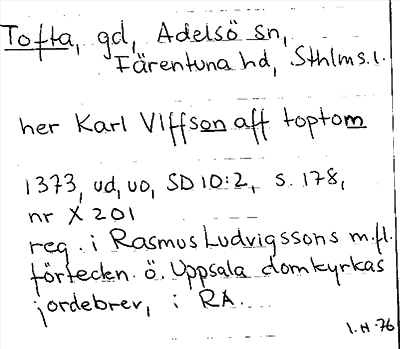 Tofta, gd, Adelsö sn,
Färentuna hd, Sthlms. l.
her Karl Vlffson aff toptom
1373, ud, uo, SD 10:2, s. 178,
nr X 201
reg. i Rasmus Ludvigssons m.fl.
förteckn. ö. Uppsala domkyrkas
jordebrev, i RA.
I.H-76